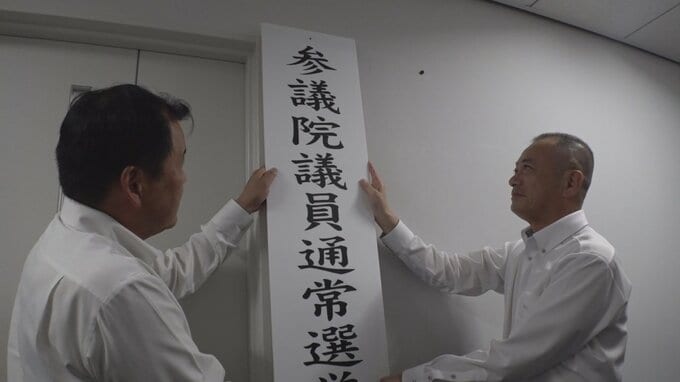 参議院議員通常選挙